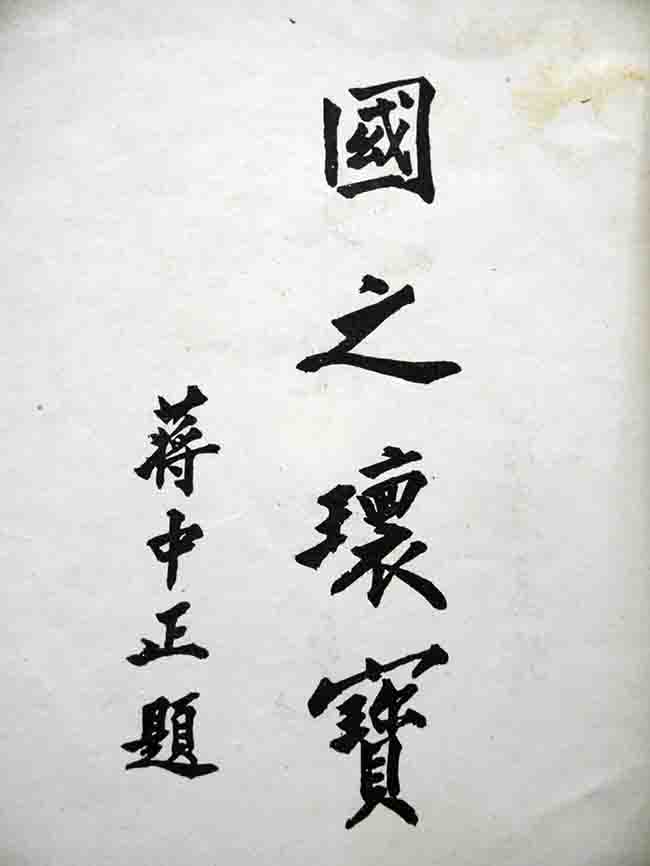 國之瓌寶
蔣中正題